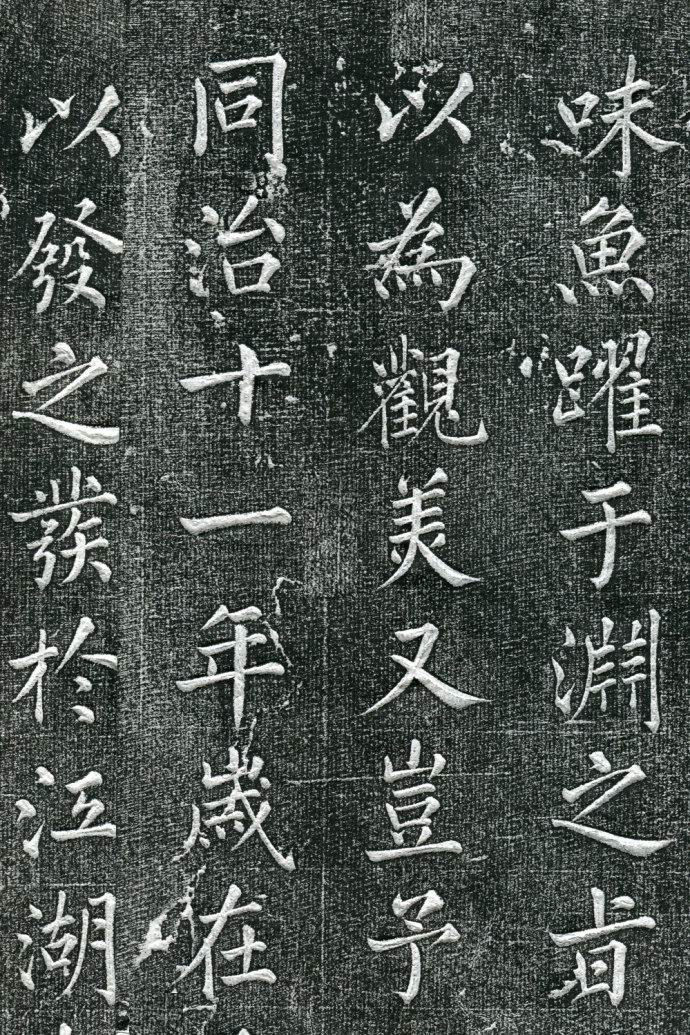 味魚躍于淵之旨
以為觀美又豈予
同治十一年歲在
以發之發於江湖